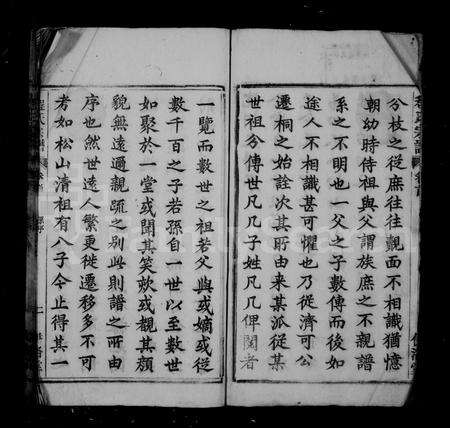 分枝之從庶往往覿面不相識猶憶
朝幼時侍祖與父謂族庶之不親譜
系之不明也一父之子數傳而後如
途人不相識甚可懼也乃從濟可公
遷桐之始詮次其所由来某派從某
世祖分傳世凡几子姓凡几俾閱者
一覽而數世之祖若父與或嫡或從
數千百之子若孫自一世以至數世
如聚於一堂或聞其笑欬或覩其顔
貌無遠過親疏之别此則譜之所由
序也然世逺人繁更徙遷移多不可
考如松山清祖有八子今止得其一